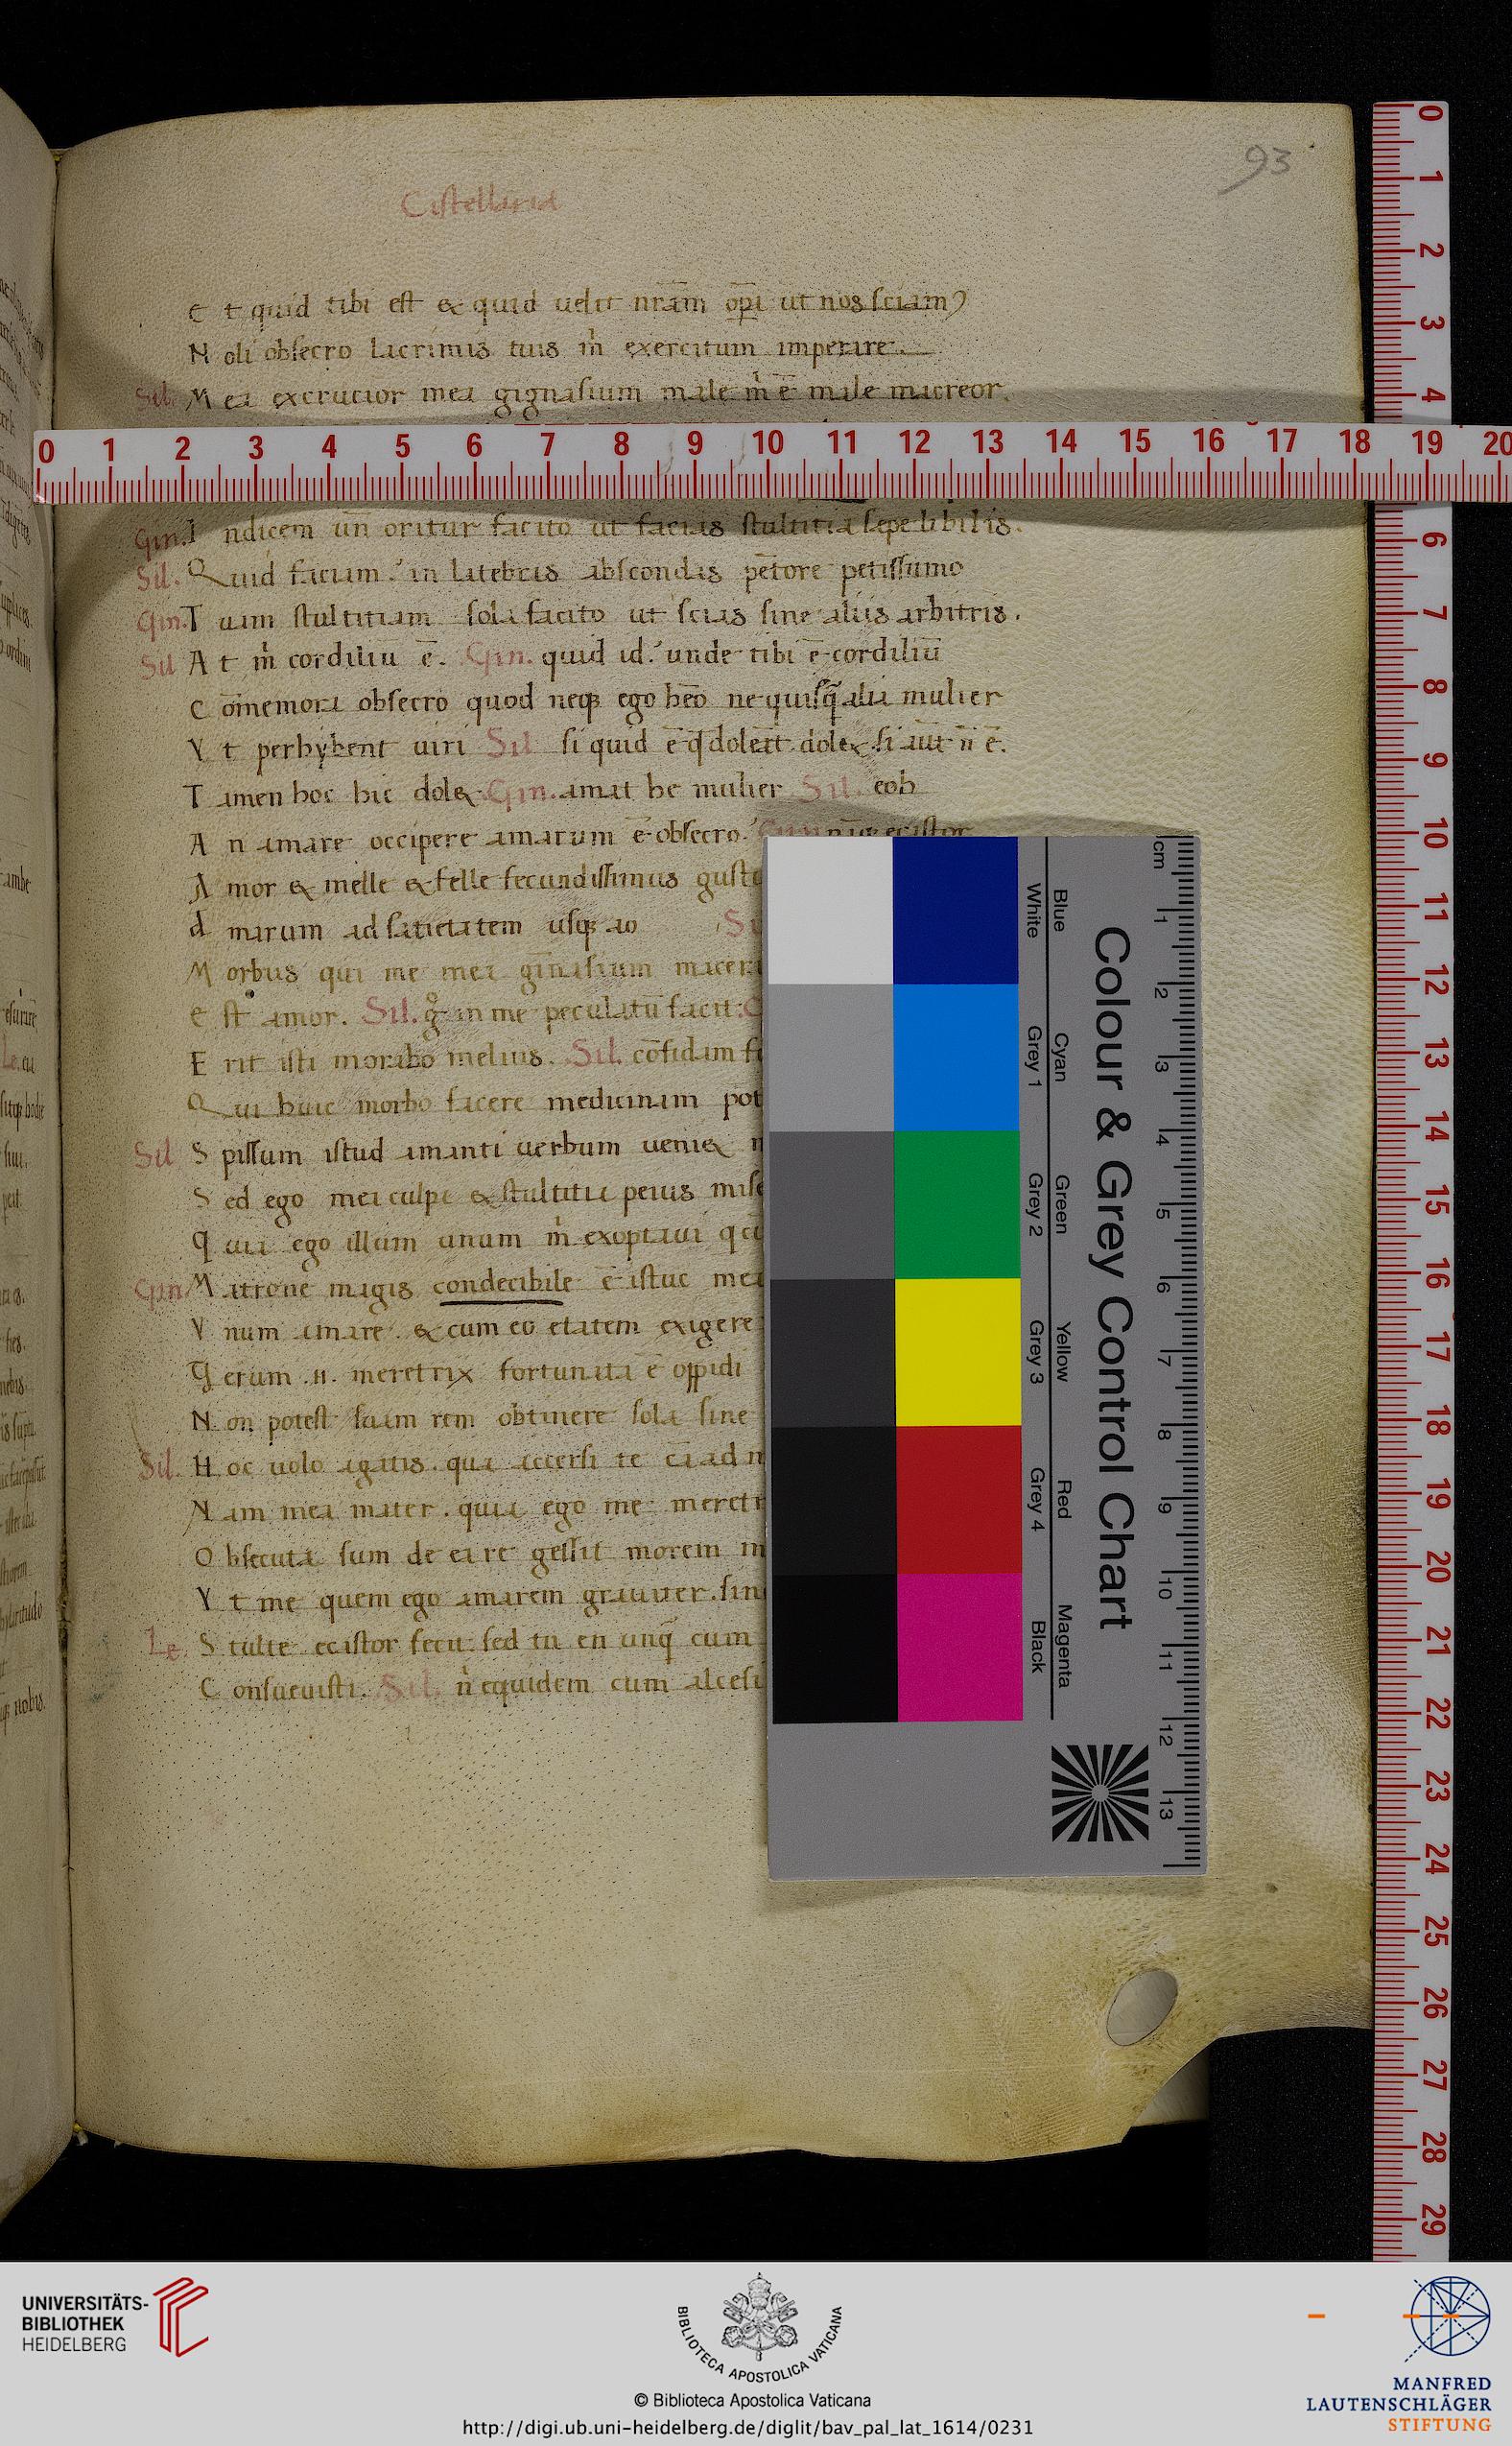 93
Cistellaria
E t quid tibi est & quid uelit nr̄am op̄ī ut nos sciam
N oli obsecro lacrimis tuis m̄ exercitum imperare.
Sil. M ea excrucior mea gignasium male m̄ ē male macreor.
Gin. I ndicem un̄ oritur facito ut facias stultitia sepelibilis.
Sil. Quid faciam? in latebras abscondas pectore petissumo
Gin. T uam stultitiam sola facito ut scias sine aliis arbitris.
Sil A t m̄ cordiliū ē. Gin. quid id? unde tibi ē cordiliū
C om̄emora obsecro quod neq; ego heo ne quisq̄ alia mulier
V t perhybent uiri Sil si quid ē q̄ doleat dol& si aut n̄ ē.
T amen hoc hic dol& Gin. amat hec mulier Sil. eoh
A n amare occipere amarum ē obsecro? Gin nāq; ecastor
A mor & melle & felle fecundissimus
A marum ad satietatem usq;
M orbus qui me mea ginasium
E st amor. Sil. in me peculatū facit:
E rit isti morbo melius. Sil. cōfidam
Qui huic morbo facere medicinam
Sil S pissum istud amanti uerbum ueni&
S ed ego mea culpa & stultitia peius
Q uia ego illum unum m̄ exoptaui
Gin M atrone magis condecibile ē istuc
V num amare & cum eo etatem exigere
Verum .n. meretrix fortunata ē oppidi
N on potest suam rem obtinere sola sine
Sil. H oc uolo agatis. qua accersi te
N am mea mater. quia ego me
O bsecuta sum de ea re gessit morem
V t me quem ego amarem grauiter.
Le. S tulte ecastor fecit. sed tu en unq̄ cum
C onsueuisti. Sil. n̄ equidem cum
0 1 2 3 4 5 6 7 8 9 10 11 12 13 14 15 16 17 18 19 20
0 1 2 3 4 6 7 8 9 10 11 12 13 14 15 16 17 18 19 20 21 22 23 24 25 26 27 28 29
cm 1 2 3 4 5 6 7 8 9 10 11 12 13
Colour & Grey Control Chart
Blue Cyan Green Yellow Red Magenta
White Grey 1 Grey 2 Grey 3 Grey 4 Black
UNIVERSITÄTS-
BIBLIOTHEK
HEIDELBERG
BIBLIOTECA APOSTOLICA VATICANA
© Biblioteca Apostolica Vaticana
http://digi.ub.uni-heidelberg.de/diglit/bav_pal_lat_1614/0231
MANFRED
LAUTENSCHLÄGER
STIFTUNG